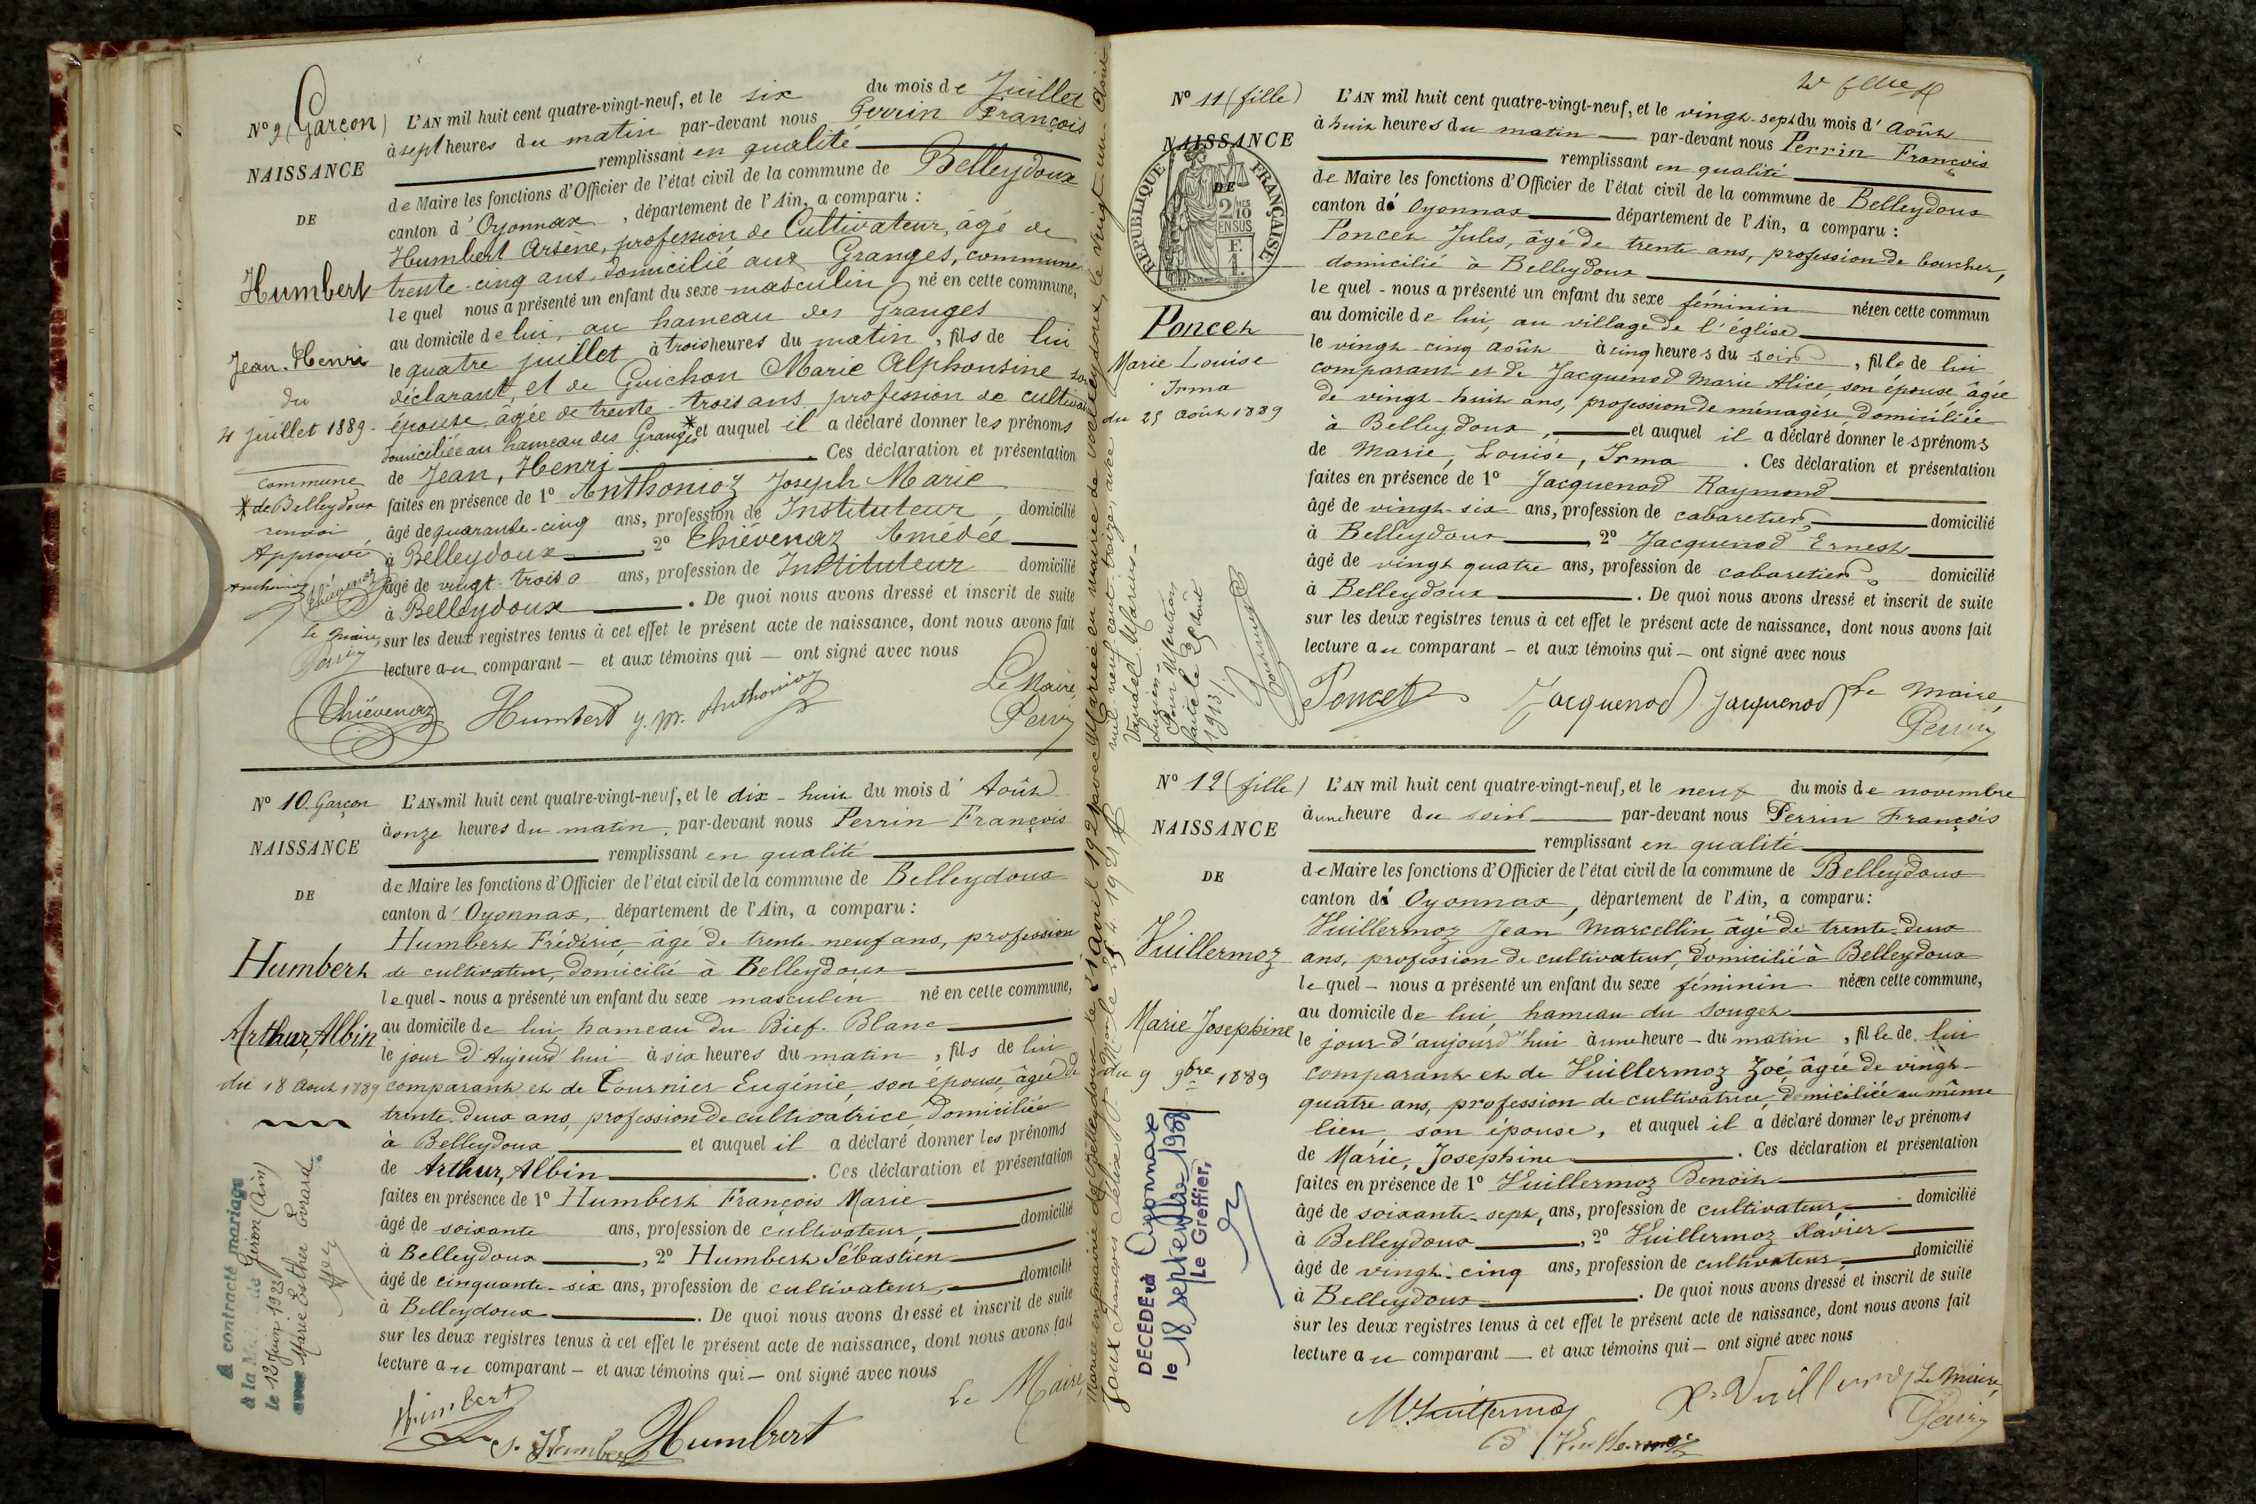 N° 9 (Garçon)
NAISSANCE
DE
Humbert
Jean-Henri
du
4 juillet 1889.
commune
* de Belleydoux
renvoi
Approuvé
Anthonioz Thiévenaz
Le Maire,
Perrin
L'AN mil huit cent quatre-vingt-neuf, et le six du mois de Juillet
à sept heures du matin par-devant nous Perrin François
remplissant en qualité
de Maire les fonctions d'Officier de l'état civil de la commune de Belleydoux
canton d'Oyonnax, département de l'Ain, a comparu :
Humbert Arsène, profession de Cultivateur, âgé de
trente-cinq ans, domicilié aux Granges, commune
lequel nous a présenté un enfant du sexe masculin né en cette commune,
au domicile de lui, au hameau des Granges
le quatre juillet à trois heures du matin, fils de lui
déclarant, et de Guichon Marie Alphonsine son
épouse, âgée de trente-trois ans profession de
domiciliée au hameau des Granges * et auquel il a déclaré donner les prénoms
de Jean, Henri . Ces déclaration et présentation
faites en présence de 1° Anthonioz Joseph Marie
âgé de quarante-cinq ans, profession de Instituteur, domicilié
à Belleydoux, 2° Thiévenaz Amédée
âgé de vingt-trois ans, profession de Instituteur domicilié
à Belleydoux . De quoi nous avons dressé et inscrit de suite
sur les deux registres tenus à cet effet le présent acte de naissance, dont nous avons fait
lecture au comparant — et aux témoins qui — ont signé avec nous
Thiévenaz Humbert J. M. Anthonioz Le Maire, Perrin
N° 10. Garçon
NAISSANCE
DE
Humbert
Arthur, Albin
du 18 Aout 1889
A contracté mariage
à la Mairie de Giron (Ain)
le 12 Juin 1923
avec Marie Esther Evrard.
L'AN mil huit cent quatre-vingt-neuf, et le dix-huit du mois d'Août
à onze heures du matin, par-devant nous Perrin François
remplissant en qualité
de Maire les fonctions d'Officier de l'état civil de la commune de Belleydoux
canton d'Oyonnax, département de l'Ain, a comparu :
Humbert Frédéric, âgé de trente-neuf ans, profession
de cultivateur, domicilié à Belleydoux
lequel - nous a présenté un enfant du sexe masculin né en cette commune,
au domicile de lui, hameau du Bief-Blanc
le jour d'Aujourd'hui à six heures du matin, fils de lui
comparant et de Tournier Eugénie, son épouse, âgée de
trente-deux ans, profession de cultivatrice, domiciliée
à Belleydoux et auquel il a déclaré donner les prénoms
de Arthur, Albin . Ces déclaration et présentation
faites en présence de 1° Humbert François Marie
âgé de soixante ans, profession de cultivateur, domicilié
à Belleydoux, 2° Humbert Sébastien
âgé de cinquante-six ans, profession de cultivateur, domicilié
à Belleydoux . De quoi nous avons dressé et inscrit de suite
sur les deux registres tenus à cet effet le présent acte de naissance, dont nous avons fait
lecture au comparant — et aux témoins qui — ont signé avec nous
Humbert S. Humbert Humbert Le Maire,
N° 11 (fille)
NAISSANCE
DE
RÉPUBLIQUE FRANÇAISE
2/10 EN SUS
F.
1.
Poncet
Marie Louise
Irma
du 25 Août 1889
Vandel Marius
Eugène.
Pour Mention
faite le 25 Août
1913/.
Tournier
L'AN mil huit cent quatre-vingt-neuf, et le vingt-sept du mois d'Août
à huit heures du matin — par-devant nous Perrin François
remplissant en qualité
de Maire les fonctions d'Officier de l'état civil de la commune de Belleydoux
canton d'Oyonnax département de l'Ain, a comparu :
Poncet Jules, âgé de trente ans, profession de boucher,
domicilié à Belleydoux
lequel - nous a présenté un enfant du sexe féminin née en cette commun
au domicile de lui, au village de l'église
le vingt-cinq Août à cinq heures du soir, fille de lui
comparant et de Jacquenod Marie Alice, son épouse, âgée
de vingt-huit ans, profession de ménagère, domiciliée
à Belleydoux, et auquel il a déclaré donner les prénoms
de Marie, Louise, Irma . Ces déclaration et présentation
faites en présence de 1° Jacquenod Raymond
âgé de vingt-six ans, profession de cabaretier, domicilié
à Belleydoux, 2° Jacquenod Ernest
âgé de vingt quatre ans, profession de cabaretier, domicilié
à Belleydoux . De quoi nous avons dressé et inscrit de suite
sur les deux registres tenus à cet effet le présent acte de naissance, dont nous avons fait
lecture au comparant — et aux témoins qui — ont signé avec nous
Poncet Jacquenod Jacquenod Le Maire, Perrin
N° 12 (fille)
NAISSANCE
DE
Vuillermoz
Marie Josephine
du 9 9bre 1889
DÉCÉDÉE à Oyonnax
le 18 septembre
Le Greffier,
L'AN mil huit cent quatre-vingt-neuf, et le neuf du mois de novembre
à une heure du soir par-devant nous Perrin François
remplissant en qualité
de Maire les fonctions d'Officier de l'état civil de la commune de Belleydoux
canton d'Oyonnax, département de l'Ain, a comparu :
Vuillermoz Jean Marcellin, âgé de trente-deux
ans, profession de cultivateur, domicilié à Belleydoux
lequel — nous a présenté un enfant du sexe féminin née en cette commune,
au domicile de lui, hameau du Souget
le jour d'aujourd'hui à une heure — du matin, fille de lui
comparant et de Vuillermoz Zoé, âgée de vingt-
quatre ans, profession de cultivatrice, domiciliée au même
lieu, son épouse, et auquel il a déclaré donner les prénoms
de Marie, Josephine . Ces déclaration et présentation
faites en présence de 1° Vuillermoz Benoit
âgé de soixante-sept, ans, profession de cultivateur, domicilié
à Belleydoux, 2° Vuillermoz Xavier
âgé de vingt-cinq ans, profession de cultivateur, domicilié
à Belleydoux . De quoi nous avons dressé et inscrit de suite
sur les deux registres tenus à cet effet le présent acte de naissance, dont nous avons fait
lecture au comparant — et aux témoins qui — ont signé avec nous
M. Vuillermoz X. Vuillermoz Le Maire, Perrin